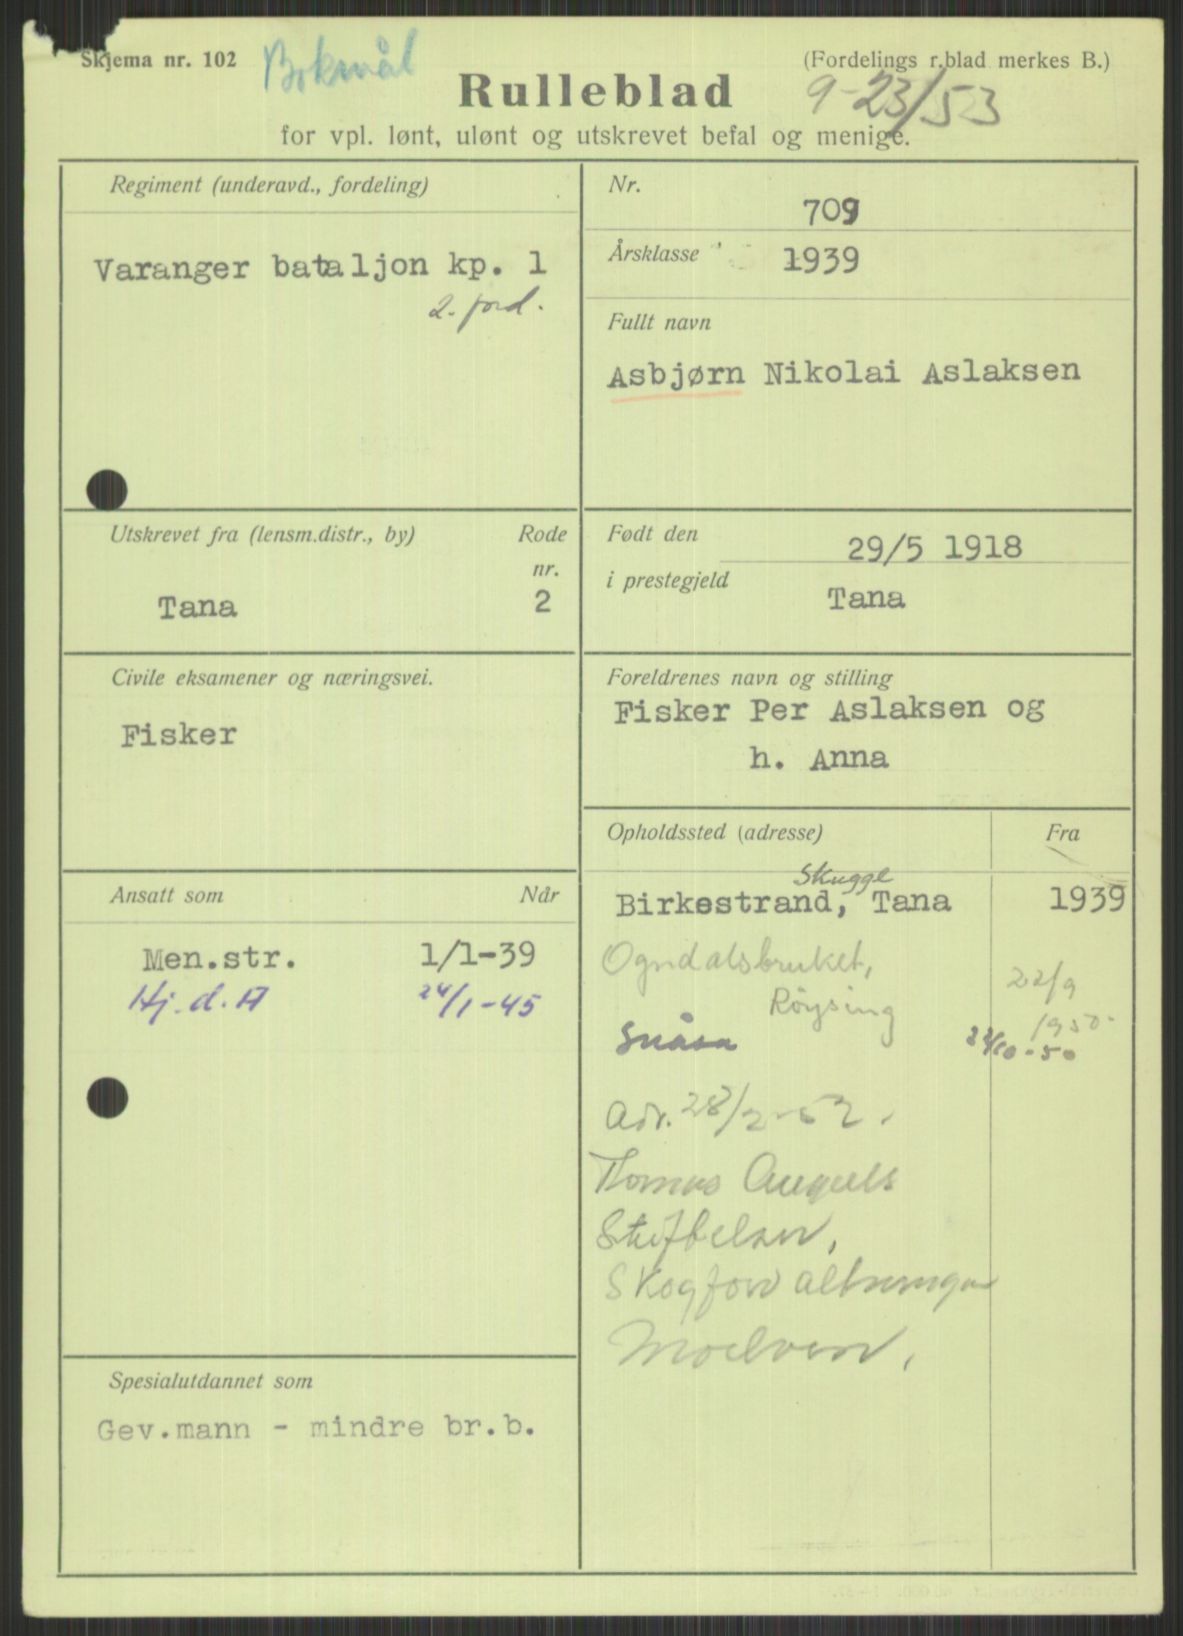 Skjema nr. 102
Bokmål
(Fordelings r.blad merkes B.)
Rulleblad
9-23/53
for vpl. lønt, ulønt og utskrevet befal og menige.
Regiment (underavd., fordeling)
Varanger bataljon kp. 1
2. ford.
Nr.
709
Årsklasse
1939
Fullt navn
Asbjørn Nikolai Aslaksen
Utskrevet fra (lensm.distr., by)
Rode
nr.
Tana
2
Født den
29/5 1918
i prestegjeld
Tana
Civile eksamener og næringsvei.
Fisker
Foreldrenes navn og stilling
Fisker Per Aslaksen og
h. Anna
Ansatt som
Når
Men.str. 1/1-39
Hj. d. A 24/1-45
Opholdssted (adresse)
Fra
Skugge
Birkestrand, Tana 1939
Ogndalsbruket, 22/9
Røysing 1950-
Snåsa 22/10-50
Adr. 28/2-52.
Thomas Angells
Stiftelser,
Skogforvaltningen
Moelven,
Spesialutdannet som
Gev.mann - mindre br.b.